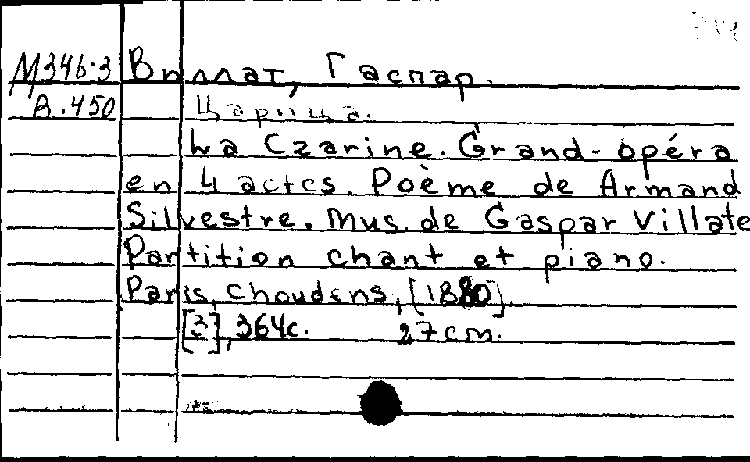 М346-3 Виллат, Гаспар.
В.450 Царица.
La Czarine. Grand-opéra
en 4 actes. Poème de Armand
Silvestre. Mus. de Gaspar Villate
Partition chant et piano.
Paris, Choudens, [1880].
[3], 364с. 27cm.